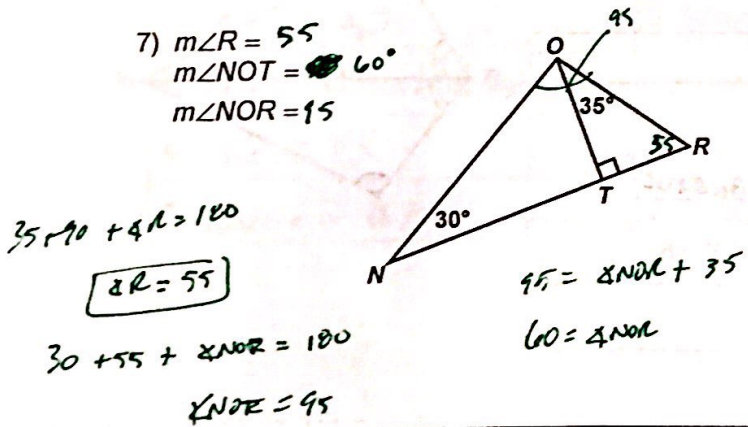 7) m∠R = 55
m∠NOT = 60°
m∠NOR = 95
95
O
35°
55
R
T
30°
N
35+90 + ∡R = 180
∡R = 55
30 + 55 + ∡NOR = 180
∡NOR = 95
95 = ∡NOR + 35
60 = ∡NOR